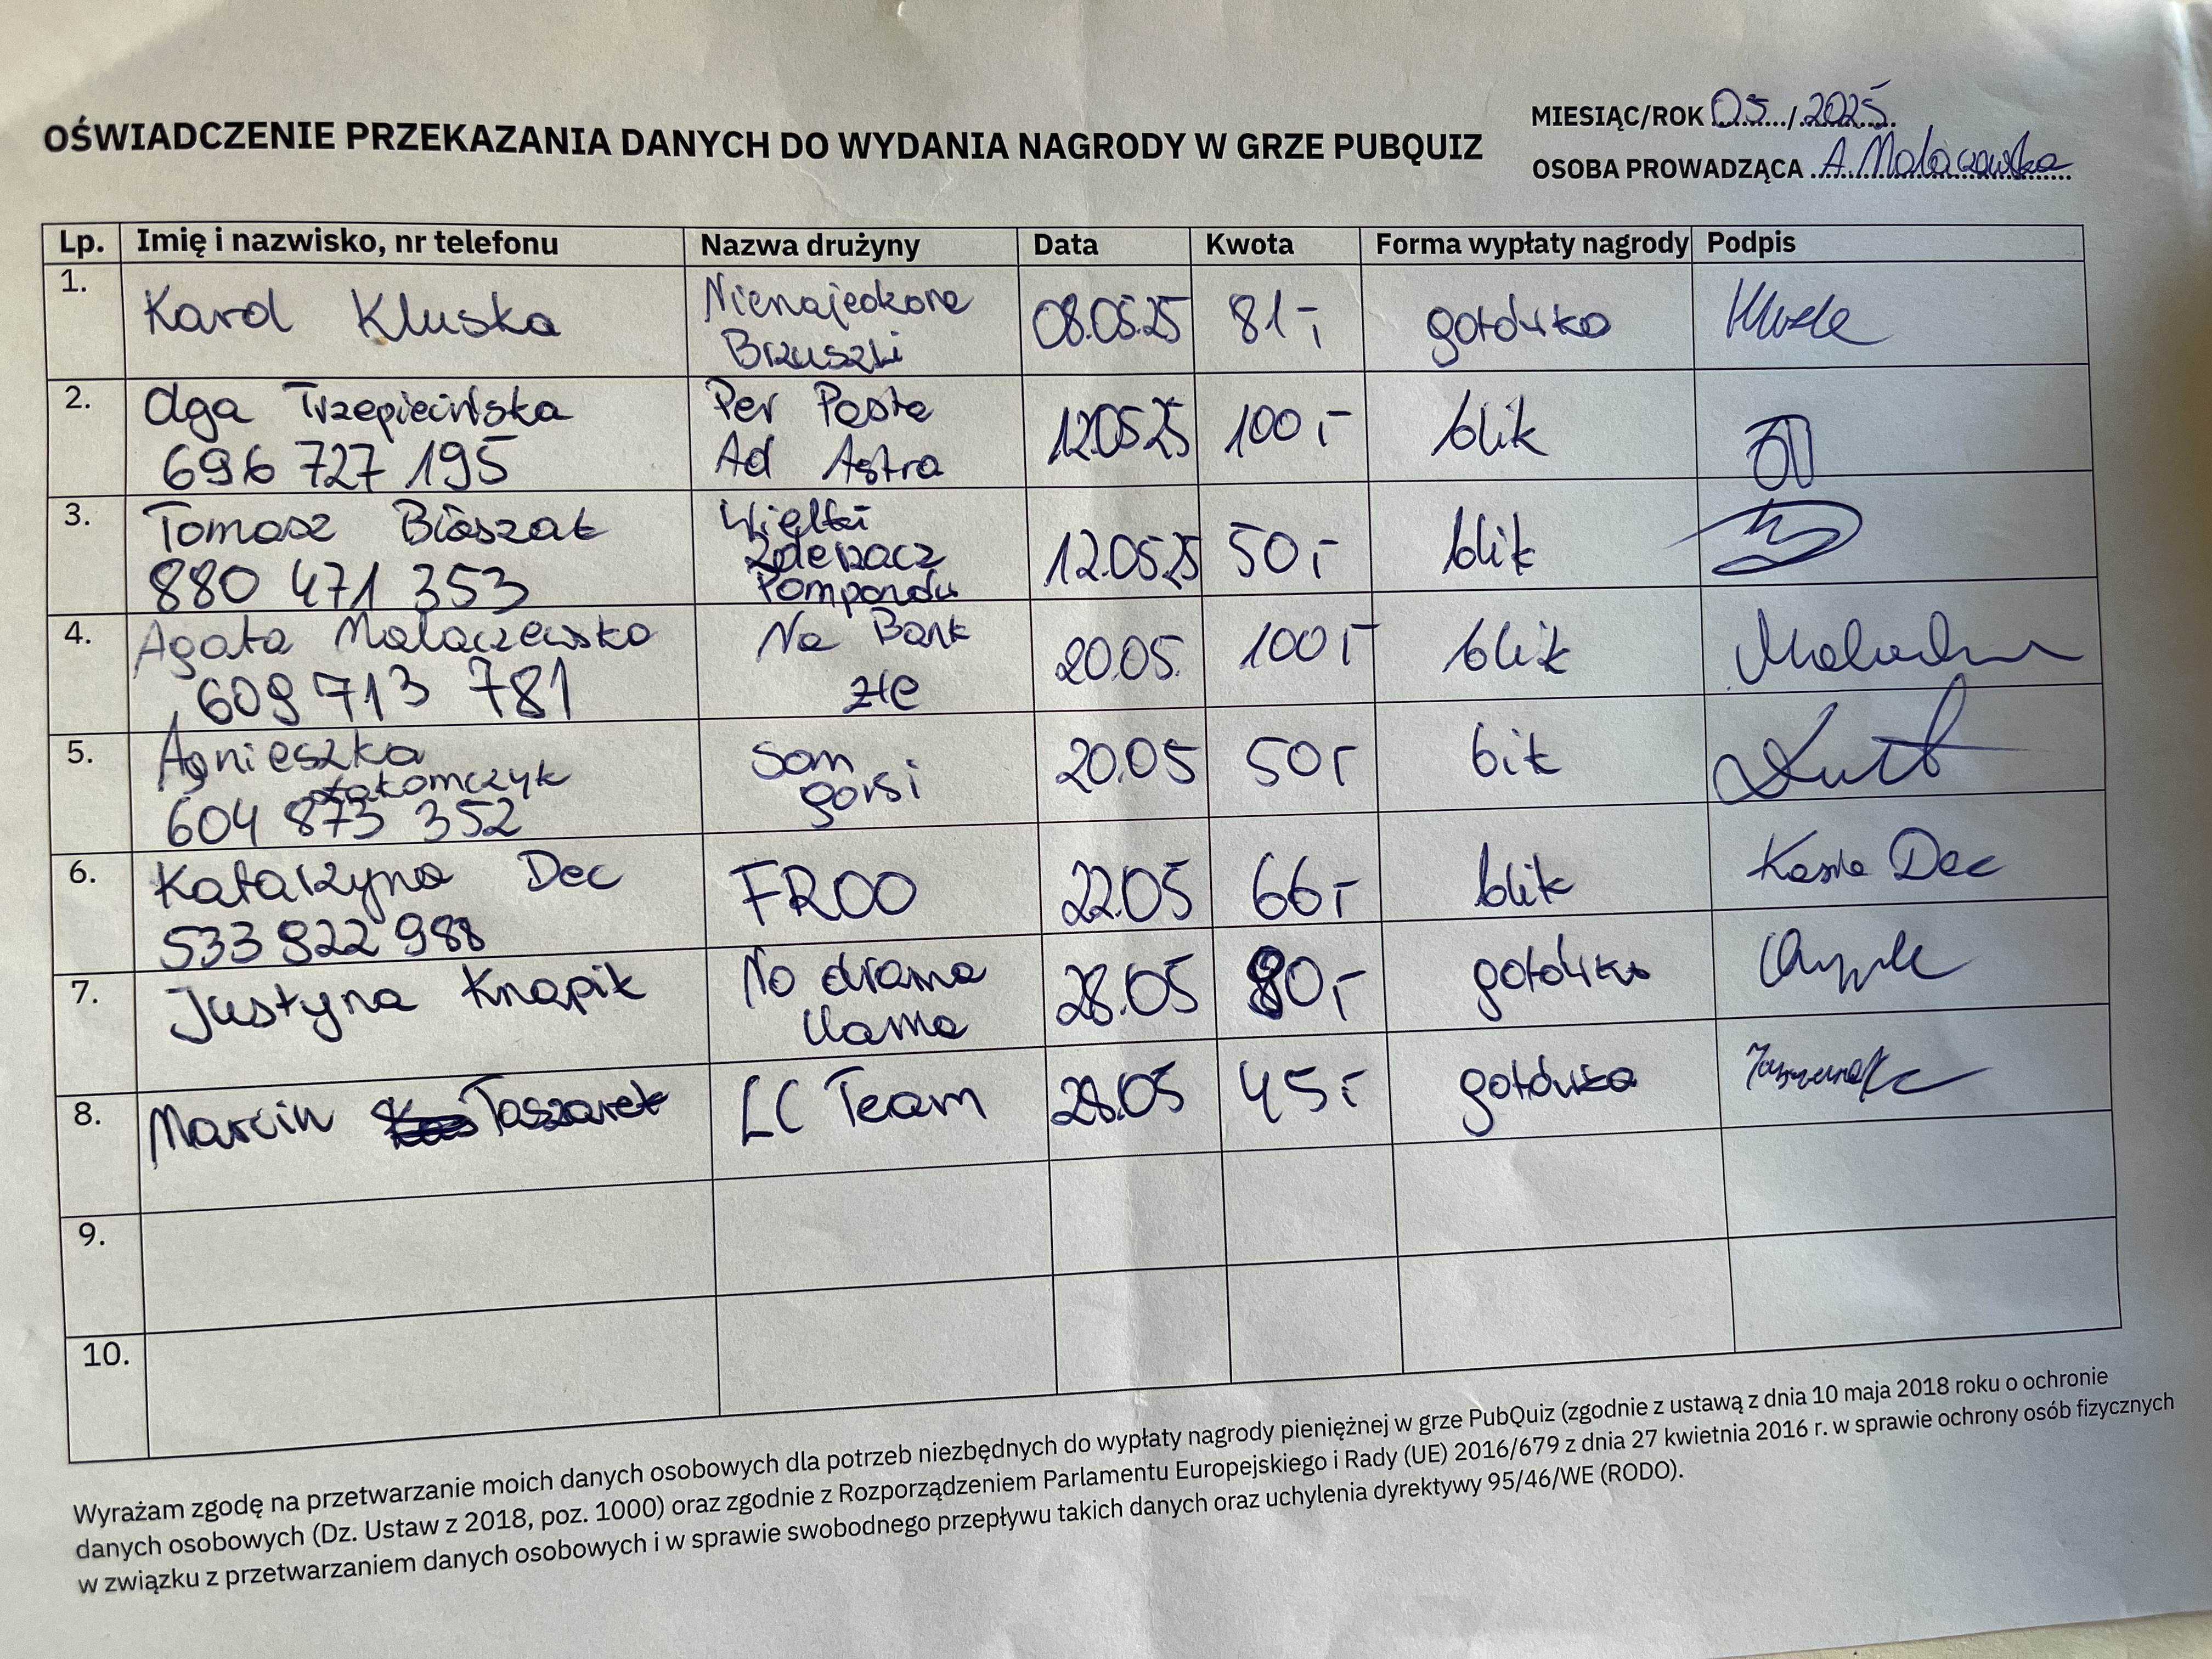 OŚWIADCZENIE PRZEKAZANIA DANYCH DO WYDANIA NAGRODY W GRZE PUBQUIZ
MIESIĄC/ROK 05/2025
OSOBA PROWADZĄCA A. Malaczewska
Lp. Imię i nazwisko, nr telefonu Nazwa drużyny Data Kwota Forma wypłaty nagrody Podpis
1. Karol Kluska Nienajedzone Brzuszki 08.05.25 81,- gotówka
2. Olga Trzepiecińska 696 727 195 Per Pasta Ad Astra 12.05.25 100,- blik
3. Tomasz Błaszak 880 471 353 Wielki Zderzacz Pomponów 12.05.25 50,- blik
4. Agata Malaczewska 609 713 781 Na Bank źle 20.05. 100,- blik
5. Agnieszka 604 873 352 Som gorsi 20.05 50,- blik
6. Katarzyna Dec 533 922 988 FROO 22.05 66,- blik Kasia Dec
7. Justyna Knapik No drama llama 28.05 80,- gotówka
8. Marcin Taszarek LC Team 28.05 45,- gotówka
9.
10.
Wyrażam zgodę na przetwarzanie moich danych osobowych dla potrzeb niezbędnych do wypłaty nagrody pieniężnej w grze PubQuiz (zgodnie z ustawą z dnia 10 maja 2018 roku o ochronie
danych osobowych (Dz. Ustaw z 2018, poz. 1000) oraz zgodnie z Rozporządzeniem Parlamentu Europejskiego i Rady (UE) 2016/679 z dnia 27 kwietnia 2016 r. w sprawie ochrony osób fizycznych
w związku z przetwarzaniem danych osobowych i w sprawie swobodnego przepływu takich danych oraz uchylenia dyrektywy 95/46/WE (RODO).